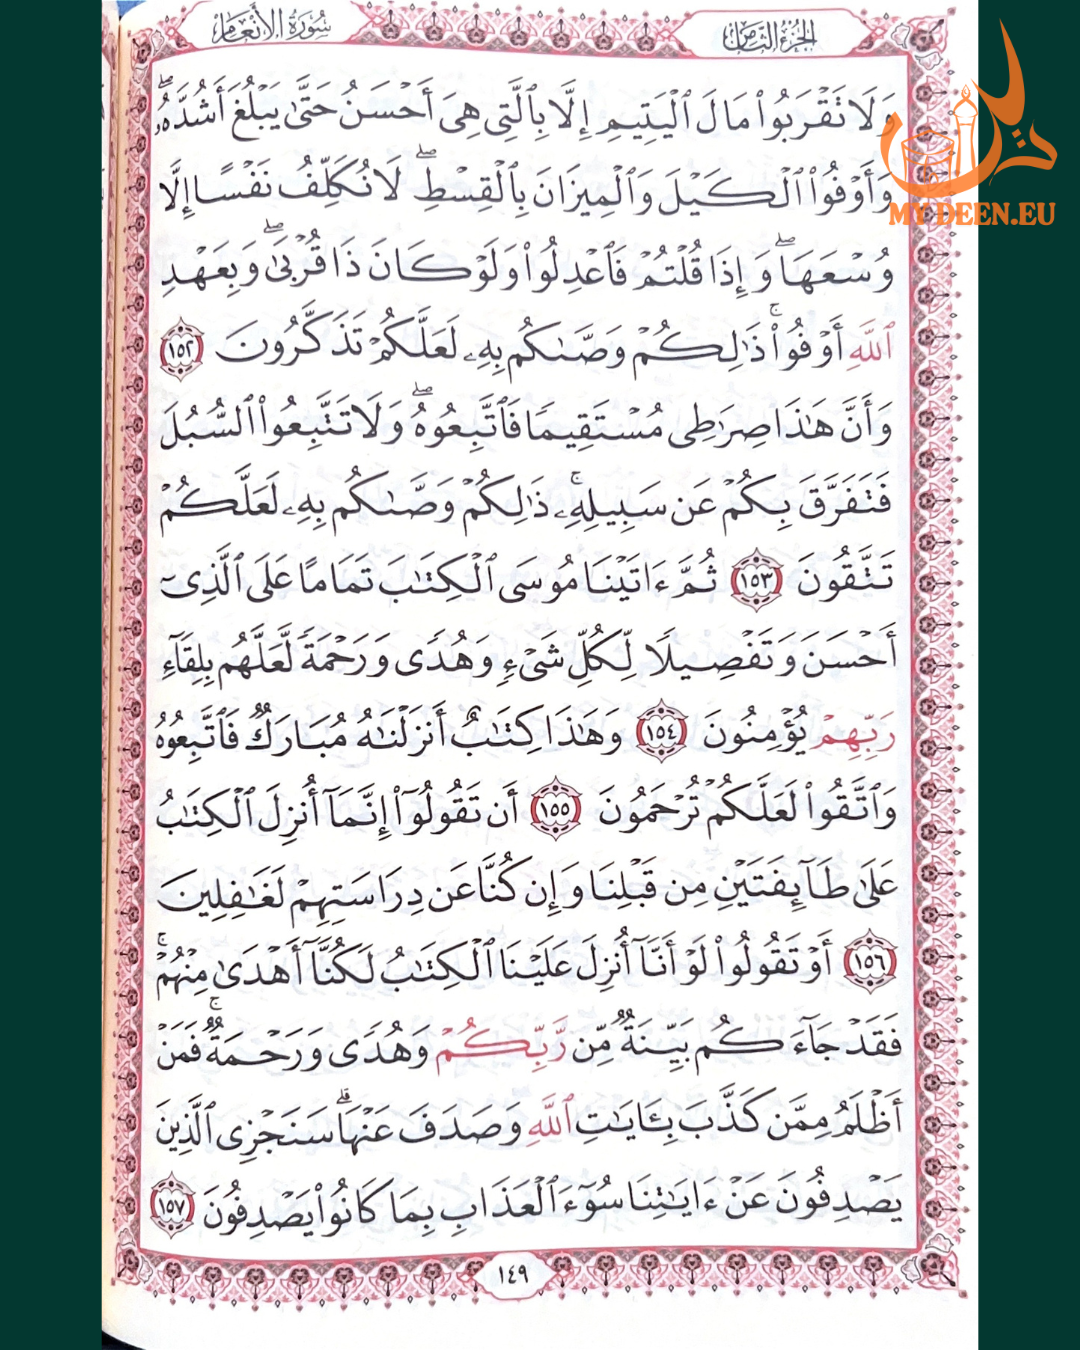 سُورَةُ الأَنْعَامِ
الجُزْءُ الثَّامِنُ
MYDEEN.EU
وَلَا تَقْرَبُوا۟ مَالَ ٱلْيَتِيمِ إِلَّا بِٱلَّتِى هِىَ أَحْسَنُ حَتَّىٰ يَبْلُغَ أَشُدَّهُۥۖ
وَأَوْفُوا۟ ٱلْكَيْلَ وَٱلْمِيزَانَ بِٱلْقِسْطِۖ لَا نُكَلِّفُ نَفْسًا إِلَّا
وُسْعَهَاۖ وَإِذَا قُلْتُمْ فَٱعْدِلُوا۟ وَلَوْ كَانَ ذَا قُرْبَىٰۖ وَبِعَهْدِ
ٱللَّهِ أَوْفُوا۟ۚ ذَٰلِكُمْ وَصَّىٰكُم بِهِۦ لَعَلَّكُمْ تَذَكَّرُونَ ١٥٢
وَأَنَّ هَٰذَا صِرَٰطِى مُسْتَقِيمًا فَٱتَّبِعُوهُۖ وَلَا تَتَّبِعُوا۟ ٱلسُّبُلَ
فَتَفَرَّقَ بِكُمْ عَن سَبِيلِهِۦۚ ذَٰلِكُمْ وَصَّىٰكُم بِهِۦ لَعَلَّكُمْ
تَتَّقُونَ ١٥٣ ثُمَّ ءَاتَيْنَا مُوسَى ٱلْكِتَٰبَ تَمَامًا عَلَى ٱلَّذِىٓ
أَحْسَنَ وَتَفْصِيلًا لِّكُلِّ شَىْءٍ وَهُدًى وَرَحْمَةً لَّعَلَّهُم بِلِقَآءِ
رَبِّهِمْ يُؤْمِنُونَ ١٥٤ وَهَٰذَا كِتَٰبٌ أَنزَلْنَٰهُ مُبَارَكٌ فَٱتَّبِعُوهُ
وَٱتَّقُوا۟ لَعَلَّكُمْ تُرْحَمُونَ ١٥٥ أَن تَقُولُوٓا۟ إِنَّمَآ أُنزِلَ ٱلْكِتَٰبُ
عَلَىٰ طَآئِفَتَيْنِ مِن قَبْلِنَا وَإِن كُنَّا عَن دِرَاسَتِهِمْ لَغَٰفِلِينَ
١٥٦ أَوْ تَقُولُوا۟ لَوْ أَنَّآ أُنزِلَ عَلَيْنَا ٱلْكِتَٰبُ لَكُنَّآ أَهْدَىٰ مِنْهُمْۚ
فَقَدْ جَآءَكُم بَيِّنَةٌ مِّن رَّبِّكُمْ وَهُدًى وَرَحْمَةٌۚ فَمَنْ
أَظْلَمُ مِمَّن كَذَّبَ بِـَٔايَٰتِ ٱللَّهِ وَصَدَفَ عَنْهَاۗ سَنَجْزِى ٱلَّذِينَ
يَصْدِفُونَ عَنْ ءَايَٰتِنَا سُوٓءَ ٱلْعَذَابِ بِمَا كَانُوا۟ يَصْدِفُونَ ١٥٧
١٤٩